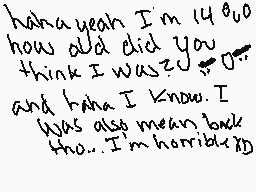 haha yeah I'm 14 0u0
how old did you
think I was?
and haha I know. I
was also mean back
tho... I'm horrible XD